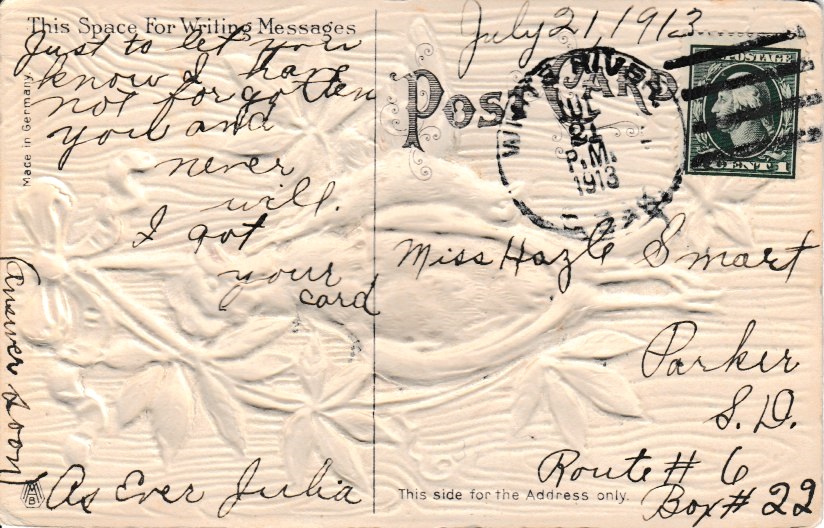 This Space For Writing Messages
Just to let you
know I have
not forgotten
you and
never
will.
I got
your
card
As Ever Julia
(Answer Soon)
Made in Germany.
MB
July 21, 1913
POST CARD
WHITE RIVER
JUL
21
P.M.
1913
POSTAGE
CENT 1
Miss Hazle Smart
Parker
S.D.
Route # 6
Box # 22
This side for the Address only.